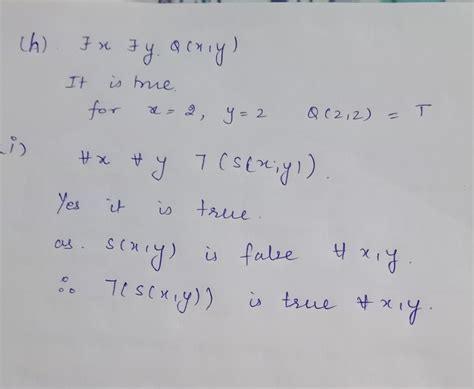 (h). ∃x ∃y. Q(x,y)
It is true.
for x = 2, y = 2 Q(2,2) = T
i)
∀x ∀y ¬(S(x,y)).
Yes it is true.
as. S(x,y) is false ∀ x,y.
∴ ¬(S(x,y)) is true ∀ x,y.